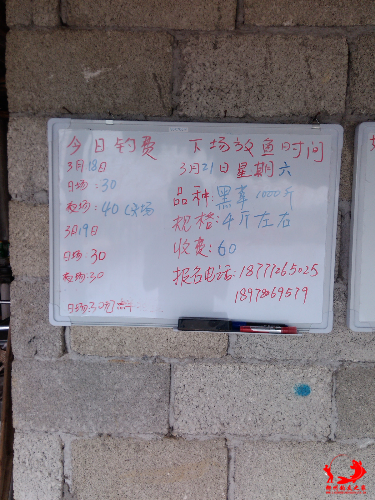 今日钓费
3月18日
日场:30
夜场:40
3月19日
日场:30
夜场:30
日场:30元
下场放鱼时间
3月21日星期六
品种:黑草 1000斤
规格:4斤左右
收费:60
报名电话:18771265025
18978069579